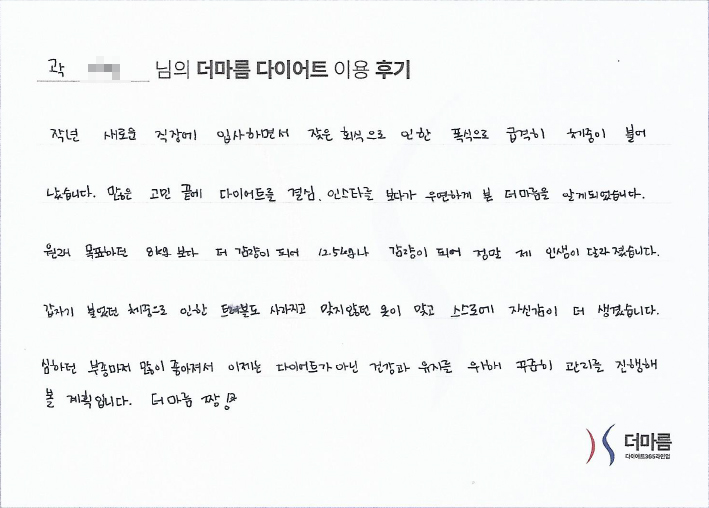 곽 님의 더마름 다이어트 이용 후기
작년 새로운 직장에 입사하면서 잦은 회식으로 인한 폭식으로 급격히 체중이 불어
났습니다. 많은 고민 끝에 다이어트를 결심, 인스타를 보다가 우연하게 본 더마름을 알게되었습니다.
원래 목표하던 8kg 보다 더 감량이 되어 12.5kg나 감량이 되어 정말 제 인생이 달라졌습니다.
갑자기 불었던 체중으로 인한 도 사라지고 맞지않던 옷이 맞고 스스로에 자신감이 더 생겼습니다.
심하던 부종마저 많이 좋아져서 이제는 다이어트가 아닌 건강과 유지를 위해 꾸준히 관리를 진행해
볼 계획입니다. 더마름 짱
더마름
다이어트365라인업